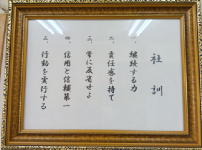 社訓
一、継続する力
二、責任感を持て
三、常に反省せよ
四、信用と信頼第一
五、行動を実行する